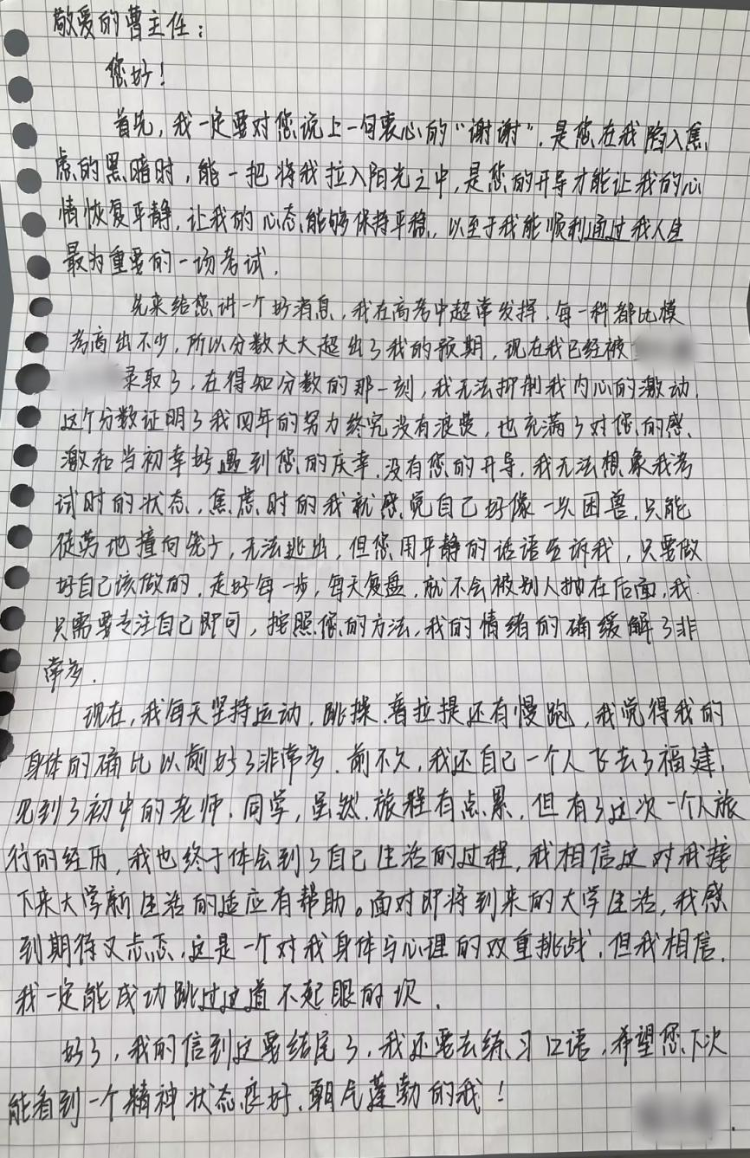 敬爱的曹主任：
您好！
首先，我一定要对您说上一句衷心的“谢谢”，是您在我陷入焦
虑的黑暗时，能一把将我拉入阳光之中，是您的开导才能让我的心
情恢复平静，让我的心态能够保持平稳，以至于我能顺利通过我人生
最为重要的一场考试．
先来给您讲一个好消息，我在高考中超常发挥，每一科都比模
考高出不少，所以分数大大超出了我的预期，现在我已经被
录取了，在得知分数的那一刻，我无法抑制我内心的激动，
这个分数证明了我四年的努力终究没有浪费，也充满了对您的感
激和当初幸好遇到您的庆幸，没有您的开导，我无法想象我考
试时的状态，焦虑时的我就感觉自己好像一只困兽，只能
徒劳地撞向笼子，无法逃出，但您用平静的话语告诉我，只要做
好自己该做的，走好每一步，每天复盘，就不会被别人抛在后面，我
只需要专注自己即可，按照您的方法，我的情绪的确缓解了非
常多．
现在，我每天坚持运动，跳操、普拉提还有慢跑，我觉得我的
身体的确比以前好了非常多．前不久，我还自己一个人飞去了福建，
见到了初中的老师、同学，虽然旅程有点累，但有了这次一个人旅
行的经历，我也终于体会到了自己生活的过程，我相信这对我接
下来大学新生活的适应有帮助。面对即将到来的大学生活，我感
到期待又忐忑，这是一个对我身体与心理的双重挑战，但我相信，
我一定能成功跳过这道不起眼的坎．
好了，我的信到这要结尾了，我还要去练习口语，希望您下次
能看到一个精神状态良好、朝气蓬勃的我！